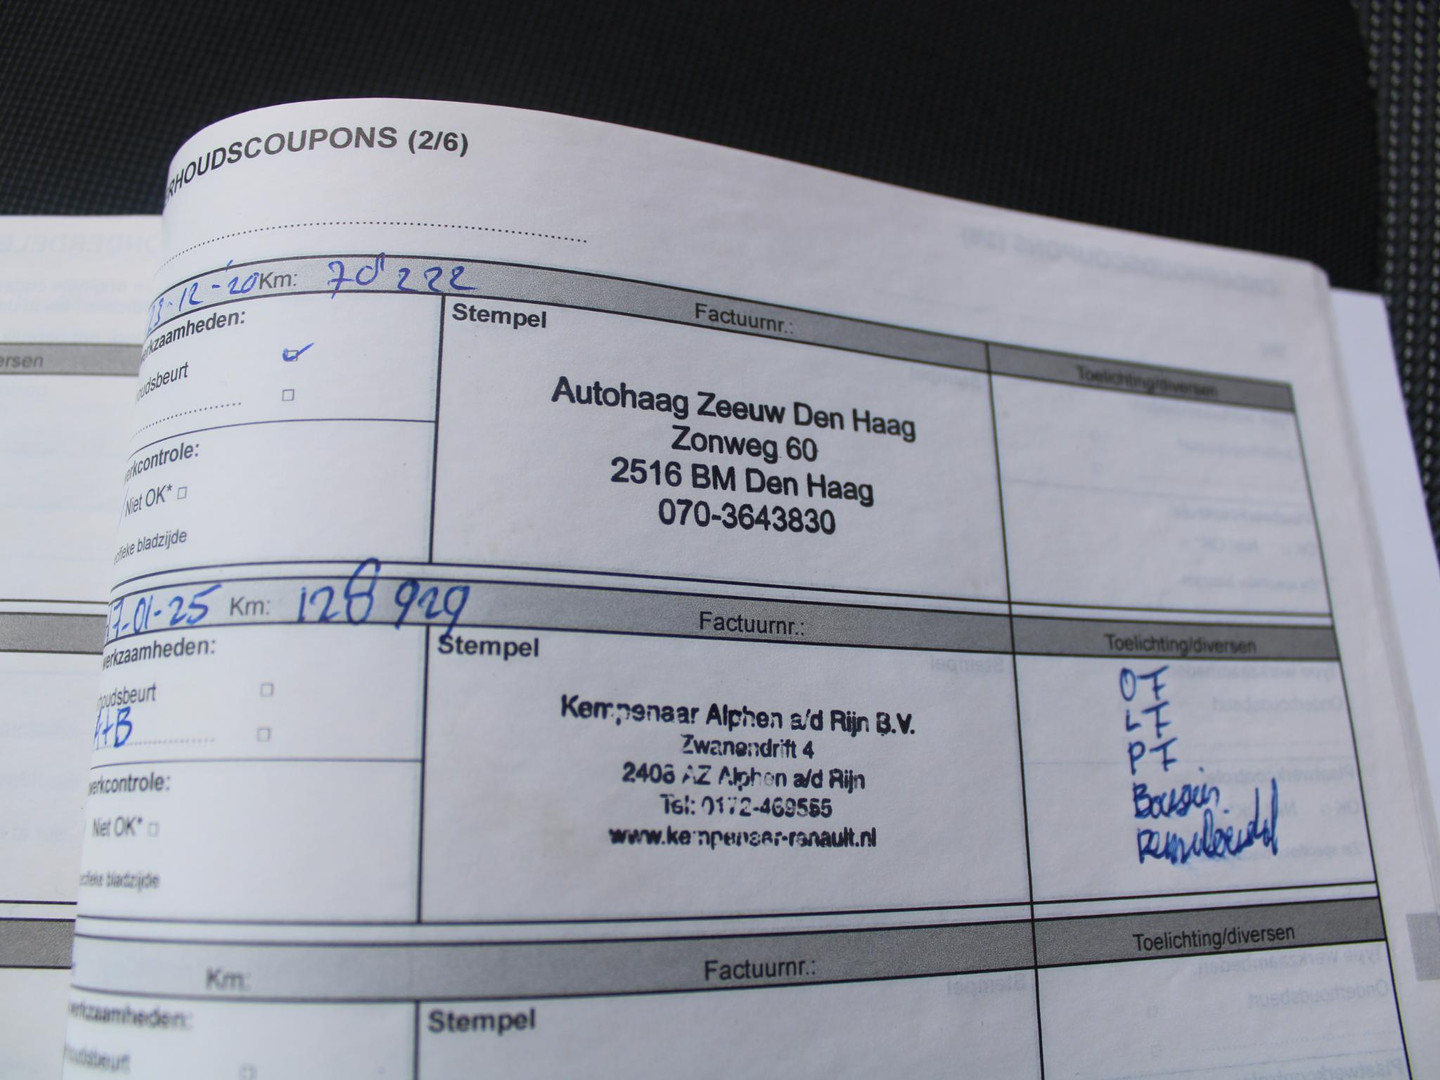 RHOUDSCOUPONS (2/6)
23-12-'20 Km: 70 222
Factuurnr.:
rkzaamheden:
Stempel
Toelichting/diversen
oudsbeurt
Autohaag Zeeuw Den Haag
Zonweg 60
2516 BM Den Haag
070-3643830
erkcontrole:
Niet OK*
cifieke bladzijde
ersen
17-01-25 Km: 128 929
Factuurnr.:
Toelichting/diversen
werkzaamheden:
Stempel
houdsbeurt
A+B
Kempenaar Alphen a/d Rijn B.V.
Zwanendrift 4
2408 AZ Alphen a/d Rijn
Tel: 0172-469555
www.kempenaar-renault.nl
OF
LF
PF
werkcontrole:
Niet OK*
cifieke bladzijde
Km:
Factuurnr.:
Toelichting/diversen
werkzaamheden:
Stempel
oudsbeurt